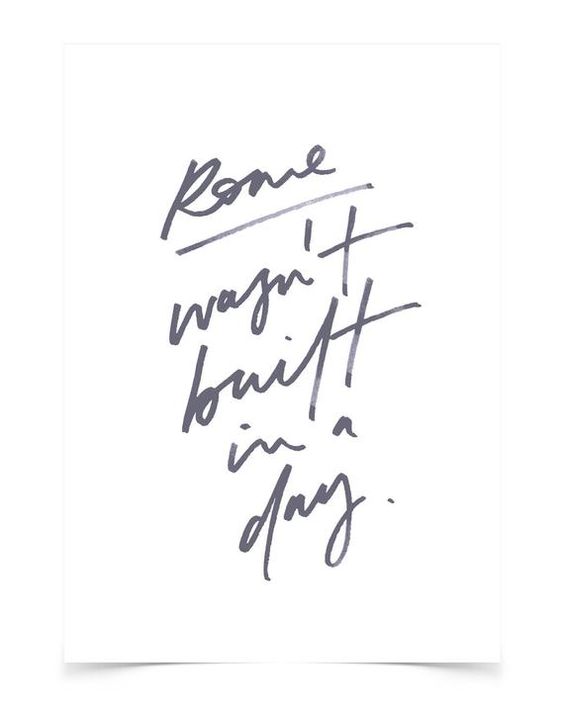 Rome
wasn't
built
in a
day.